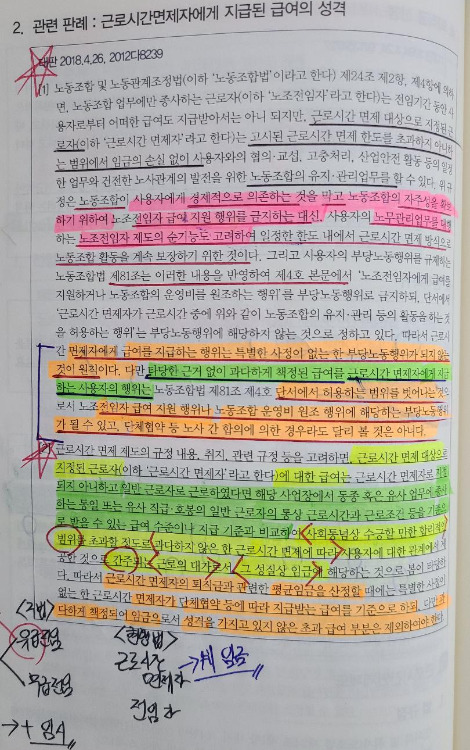 2. 관련 판례 : 근로시간면제자에게 지급된 급여의 성격
대판 2018.4.26, 2012다8239
[1] 노동조합 및 노동관계조정법(이하 ‘노동조합법’이라고 한다) 제24조 제2항, 제4항에 의하
면, 노동조합 업무에만 종사하는 근로자(이하 ‘노조전임자’라고 한다)는 전임기간 동안 사
용자로부터 어떠한 급여도 지급받아서는 아니 되지만, 근로시간 면제 대상으로 지정된 근
로자(이하 ‘근로시간 면제자’라고 한다)는 고시된 근로시간 면제 한도를 초과하지 아니하
는 범위에서 임금의 손실 없이 사용자와의 협의·교섭, 고충처리, 산업안전 활동 등의 일정
한 업무와 건전한 노사관계의 발전을 위한 노동조합의 유지·관리업무를 할 수 있다. 위 규
정은 노동조합이 사용자에게 경제적으로 의존하는 것을 막고 노동조합의 자주성을 확보
하기 위하여 노조전임자 급여 지원 행위를 금지하는 대신, 사용자의 노무관리업무를 대행
하는 노조전임자 제도의 순기능도 고려하여 일정한 한도 내에서 근로시간 면제 방식으로
노동조합 활동을 계속 보장하기 위한 것이다. 그리고 사용자의 부당노동행위를 규제하는
노동조합법 제81조는 이러한 내용을 반영하여 제4호 본문에서 ‘노조전임자에게 급여를
지원하거나 노동조합의 운영비를 원조하는 행위’를 부당노동행위로 금지하되, 단서에서
‘근로시간 면제자가 근로시간 중에 위와 같이 노동조합의 유지·관리 등의 활동을 하는 것
을 허용하는 행위’는 부당노동행위에 해당하지 않는 것으로 정하고 있다. 따라서 근로시
간 면제자에게 급여를 지급하는 행위는 특별한 사정이 없는 한 부당노동행위가 되지 않는
것이 원칙이다. 다만 타당한 근거 없이 과다하게 책정된 급여를 근로시간 면제자에게 지급
하는 사용자의 행위는 노동조합법 제81조 제4호 단서에서 허용하는 범위를 벗어나는 것으
로서 노조전임자 급여 지원 행위나 노동조합 운영비 원조 행위에 해당하는 부당노동행위
가 될 수 있고, 단체협약 등 노사 간 합의에 의한 경우라도 달리 볼 것은 아니다.
근로시간 면제 제도의 규정 내용, 취지, 관련 규정 등을 고려하면, 근로시간 면제 대상으로
지정된 근로자(이하 ‘근로시간 면제자’라고 한다)에 대한 급여는 근로시간 면제자로 지정
되지 아니하고 일반 근로자로 근로하였다면 해당 사업장에서 동종 혹은 유사 업무에 종사
하는 동일 또는 유사 직급·호봉의 일반 근로자의 통상 근로시간과 근로조건 등을 기준으
로 받을 수 있는 급여 수준이나 지급 기준과 비교하여 사회통념상 수긍할 만한 합리적인
범위를 초과할 정도로 과다하지 않은 한 근로시간 면제에 따라 사용자에 대한 관계에서 제
공한 것으로 간주되는 근로의 대가로서, 그 성질상 임금에 해당하는 것으로 봄이 타당하
다. 따라서 근로시간 면제자의 퇴직금과 관련한 평균임금을 산정할 때에는 특별한 사정이
없는 한 근로시간 면제자가 단체협약 등에 따라 지급받는 급여를 기준으로 하되, 다만 과
다하게 책정되어 임금으로서 성격을 가지고 있지 않은 초과 급여 부분은 제외하여야 한다.
<구법>
유급전임
무급전임
<현행법>
근로시간
면제자
전임자